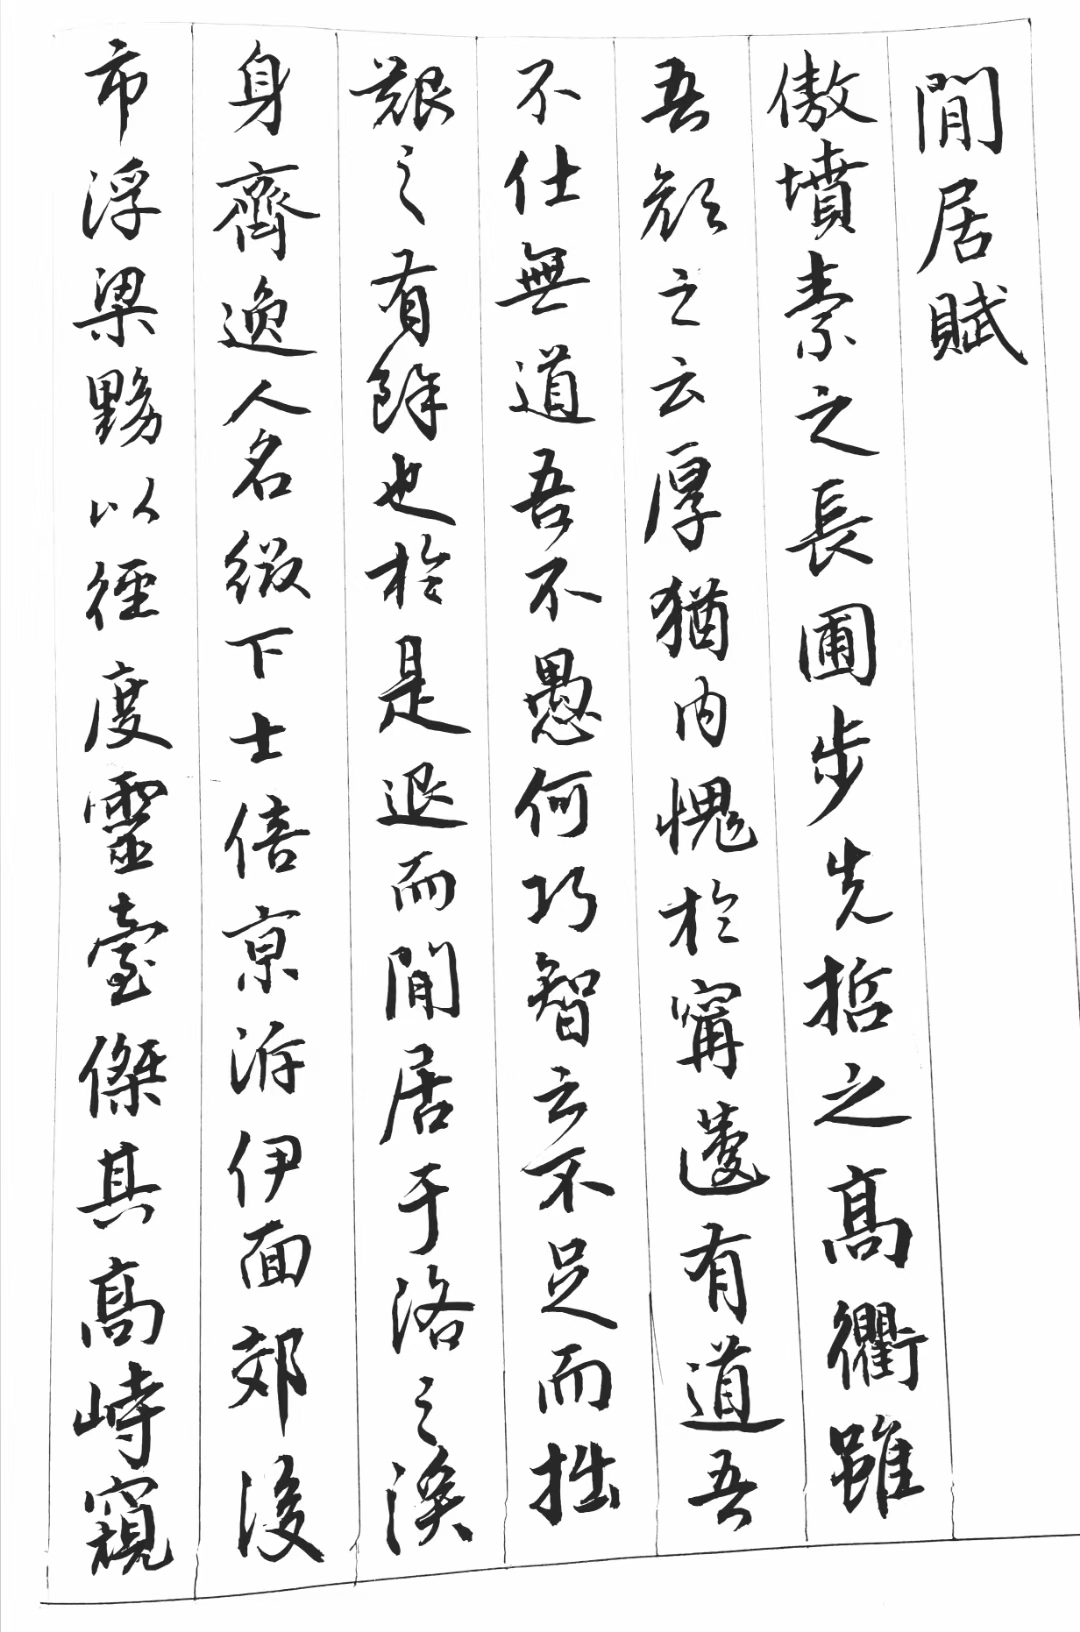 閒居賦
傲墳素之長圃步先哲之高衢雖
吾顏之云厚猶內愧於甯蘧有道吾
不仕無道吾不愚何巧智云不足而拙
艱之有餘也於是退而閒居于洛之涘
身齊逸人名綴下士倍京泝伊面郊後
市浮梁黝以徑度靈臺傑其高峙窺